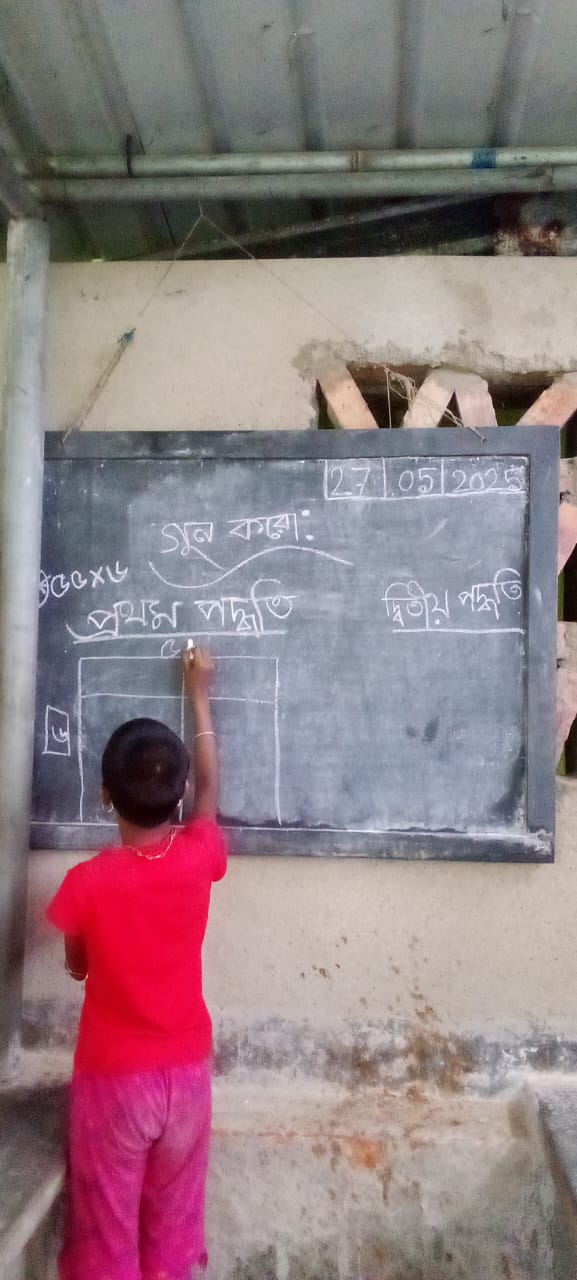 27 05 2025
গুন করো:
৫৫×৬
প্রথম পদ্ধতি
দ্বিতীয় পদ্ধতি
৫
৬